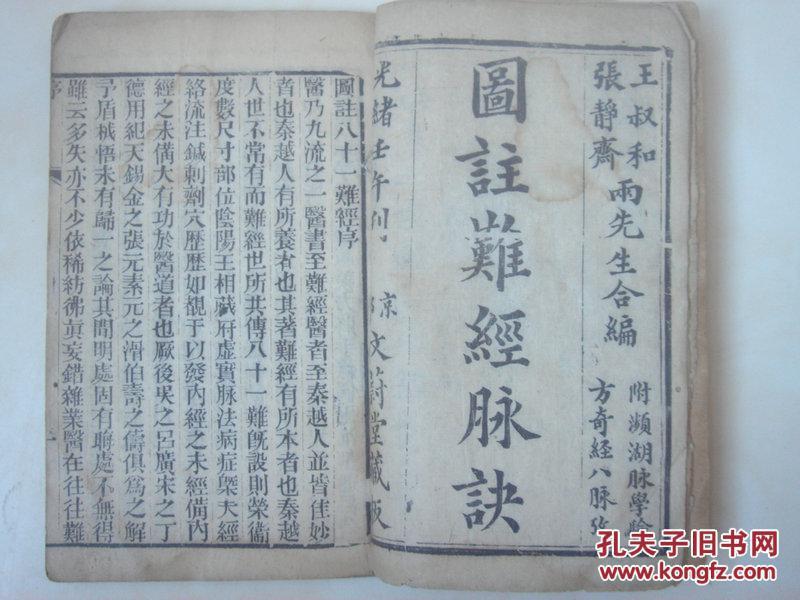 王叔和
張靜齋
兩先生合編
附瀕湖脉學
方奇経八脉
圖註難經脉訣
光緒壬午刊
京
文蔚堂藏板
圖註八十一難經序
醫乃九流之一醫書至難經醫者至秦越人並皆佳妙
者也秦越人有所養者也其著難經有所本者也秦越
人世不常有而難經世所共傳八十一難旣設則榮衞
度數尺寸部位陰陽王相藏府虛實脉法病症槩夫經
絡流注鍼刺劑穴歷歷如覩于以發內經之未經備內
經之未備大有功於醫道者也厥後吳之呂廣宋之丁
德用紀天錫金之張元素元之滑伯壽之儔俱爲之解
予盾牴悟未有歸一之論其間明處固有晦處不無得
雖云多失亦不少依稀紡彿眞妄錯雜業醫在往往難
序
孔夫子旧书网
www.kongfz.com